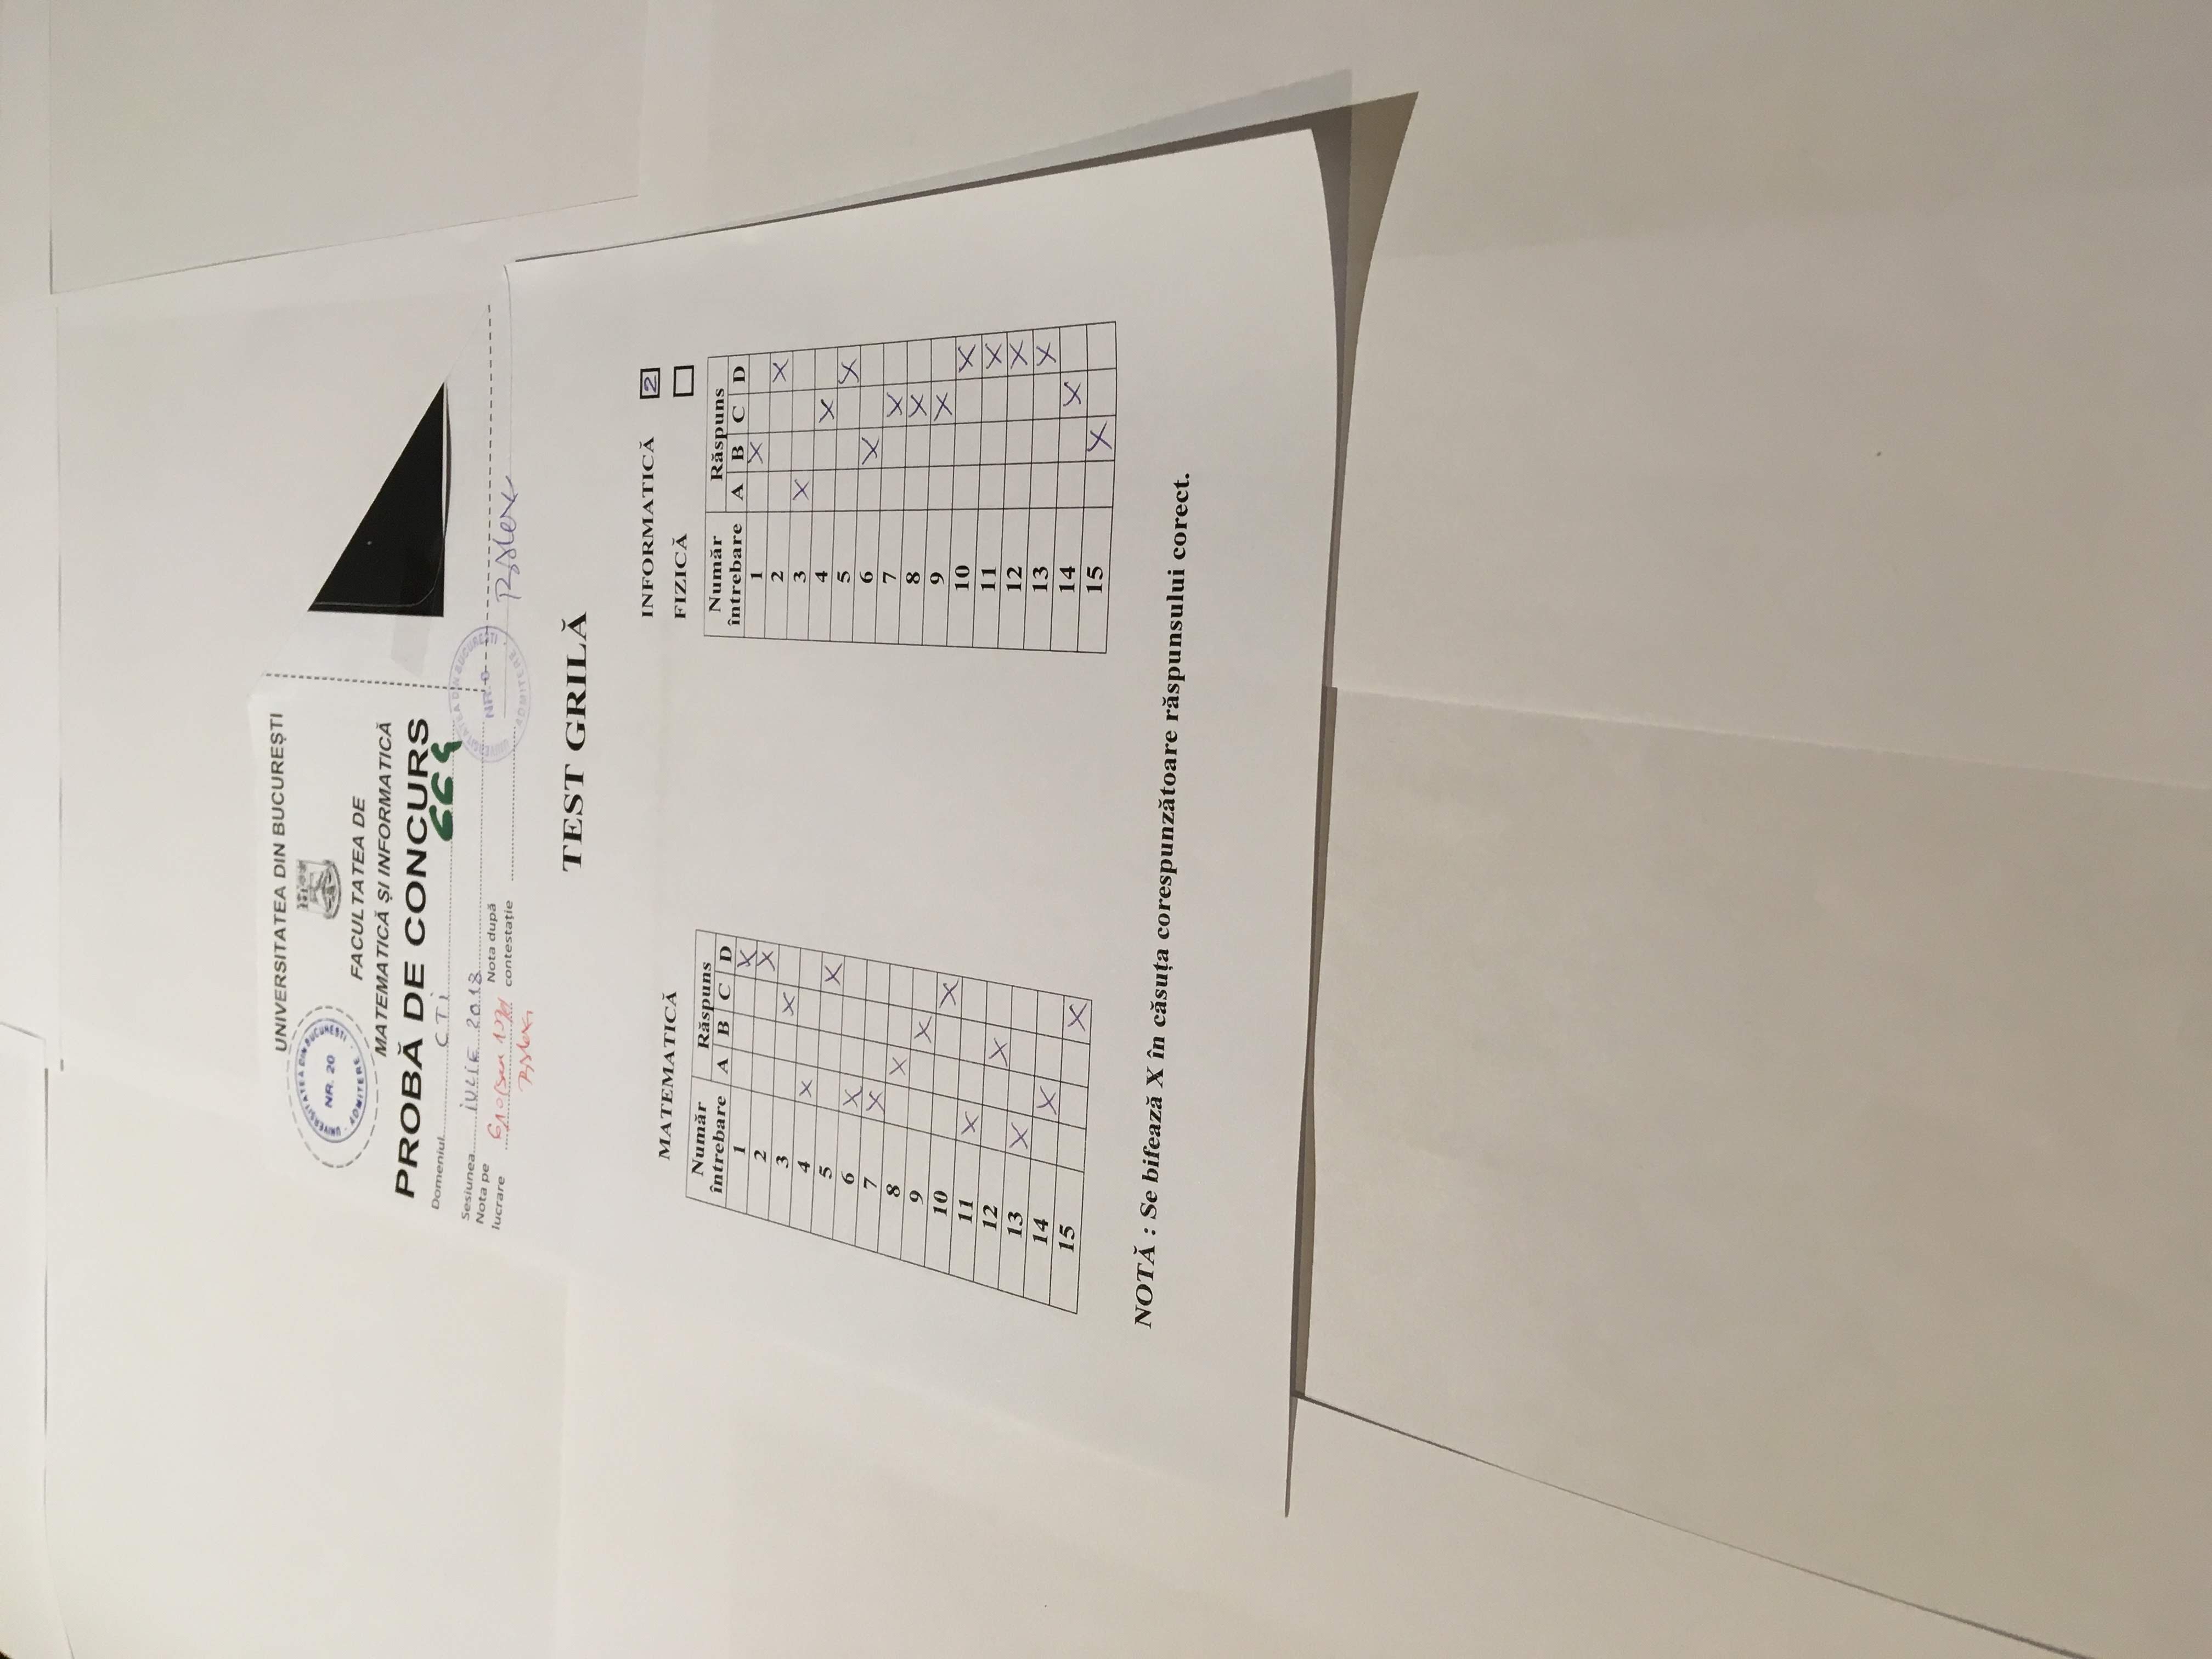 UNIVERSITATEA DIN BUCUREȘTI
UNIVERSITATEA DIN BUCUREȘTI
NR. 20
ADMITERE
FACULTATEA DE
MATEMATICĂ ȘI INFORMATICĂ
PROBĂ DE CONCURS
Domeniul CTi 664
Sesiunea iULiE 2018
Nota pe lucrare
Nota după contestație
UNIVERSITATEA DIN BUCUREȘTI
NR.
ADMITERE
TEST GRILĂ
MATEMATICĂ
Număr întrebare Răspuns
A B C D
1 X
2 X
3 X
4 X
5 X
6 X
7 X
8 X
9 X
10 X
11 X
12 X
13 X
14 X
15 X
INFORMATICĂ 2
FIZICĂ
Număr întrebare Răspuns
A B C D
1 X
2 X
3 X
4 X
5 X
6 X
7 X
8 X
9 X
10 X
11 X
12 X
13 X
14 X
15 X
NOTĂ : Se bifează X în căsuța corespunzătoare răspunsului corect.